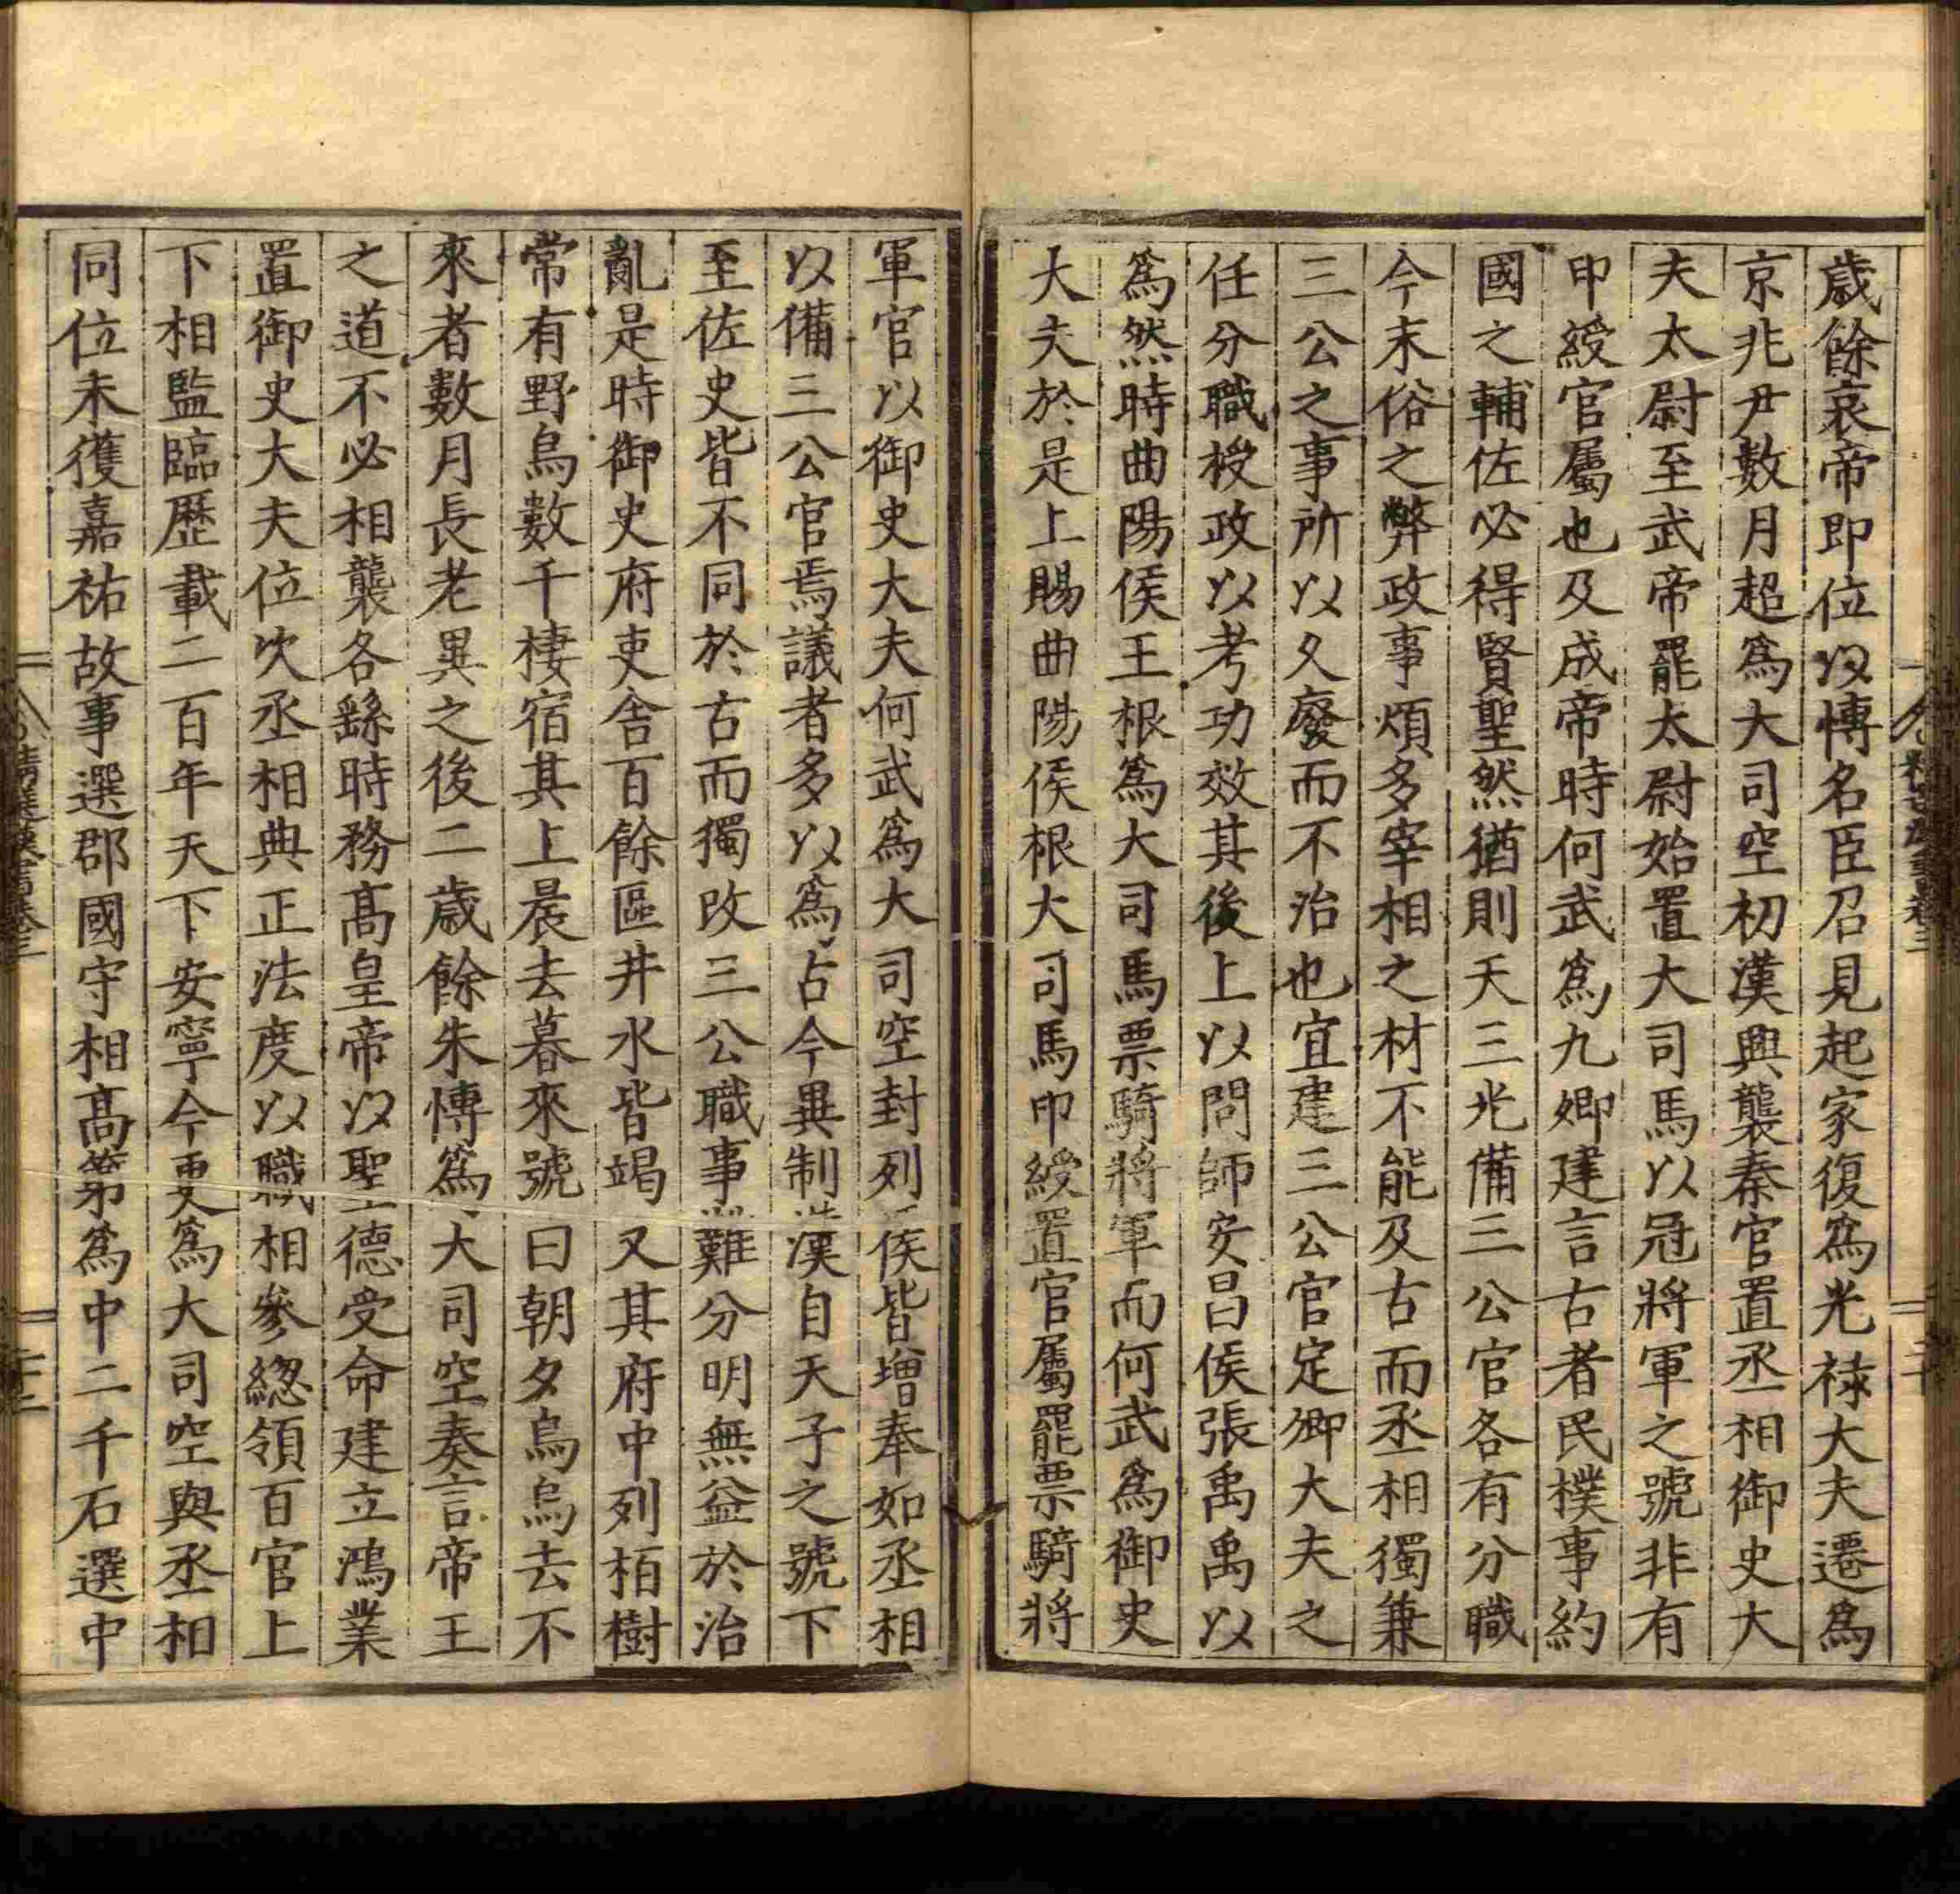 歲餘哀帝即位以博名臣召見起家復爲光祿大夫遷爲
京兆尹數月超爲大司空初漢興襲秦官置丞相御史大
夫太尉至武帝罷太尉始置大司馬以冠將軍之號非有
印綬官屬也及成帝時何武爲九卿建言古者民樸事約
國之輔佐必得賢聖然猶則天三光備三公官各有分職
今末俗之弊政事煩多宰相之材不能及古而丞相獨兼
三公之事所以久廢而不治也宜建三公官定卿大夫之
任分職授政以考功效其後上以問師安昌侯張禹禹以
爲然時曲陽侯王根爲大司馬票騎將軍而何武爲御史
大夫於是上賜曲陽侯根大司馬印綬置官屬罷票騎將
軍官以御史大夫何武爲大司空封列侯皆增奉如丞相
以備三公官焉議者多以爲古今異制漢自天子之號下
至佐史皆不同於古而獨改三公職事難分明無益於治
亂是時御史府吏舍百餘區井水皆竭又其府中列柏樹
常有野烏數千棲宿其上晨去暮來號曰朝夕烏烏去不
來者數月長老異之後二歲餘朱博爲大司空奏言帝王
之道不必相襲各繇時務高皇帝以聖德受命建立鴻業
置御史大夫位次丞相典正法度以職相參緫領百官上
下相監臨歷載二百年天下安寧今更爲大司空與丞相
同位未獲嘉祐故事選郡國守相高第爲中二千石選中